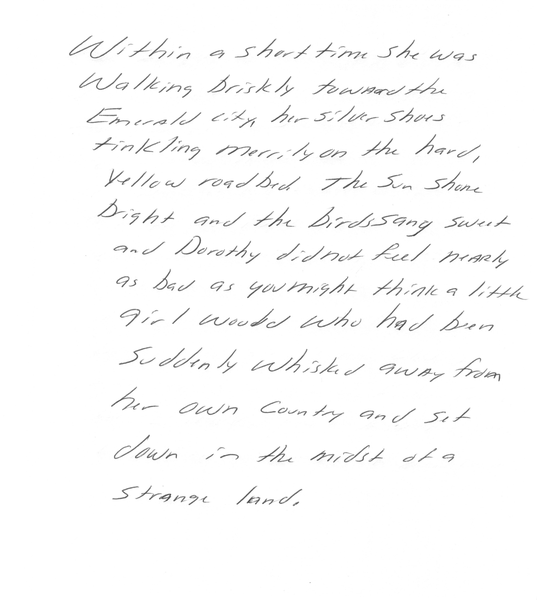 Within a short time she was
Walking briskly toward the
Emerald city, her silver shoes
tinkling merrily on the hard,
Yellow roadbed. The Sun shone
bright and the birds sang sweet
and Dorothy did not feel nearly
as bad as you might think a little
girl would who had been
Suddenly whisked away from
her own Country and set
down in the midst of a
strange land.